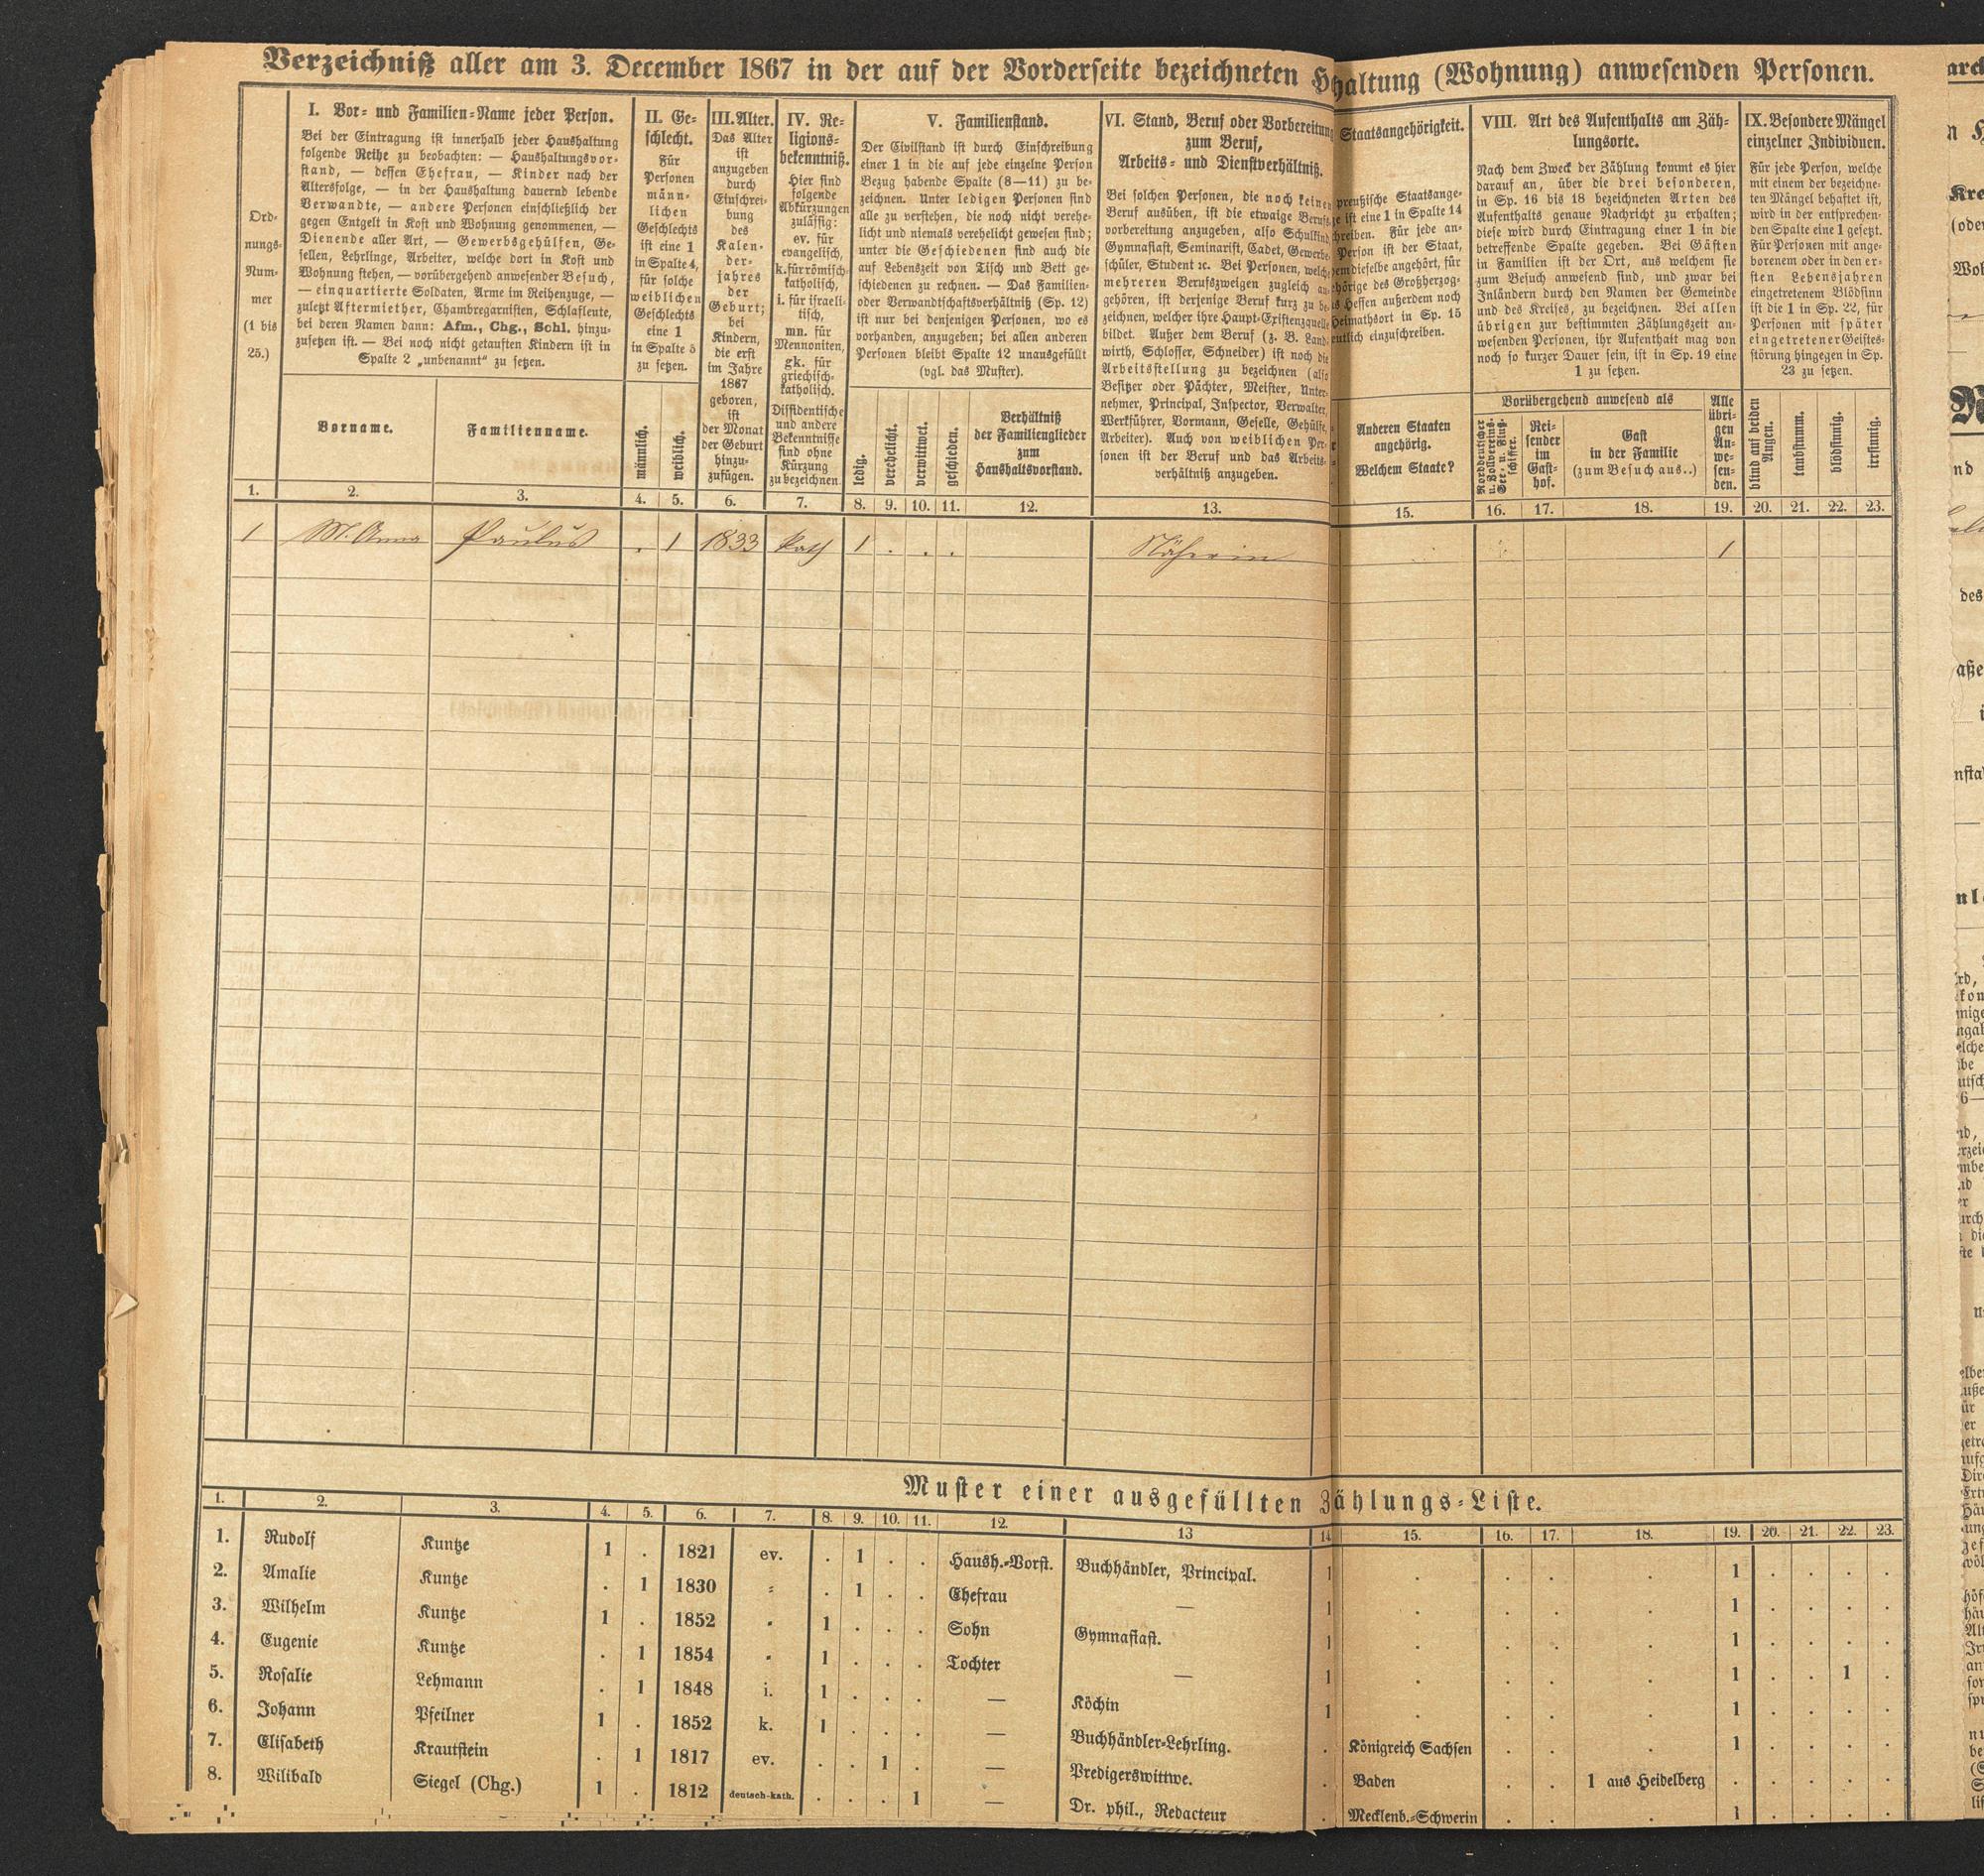 Verzeichniß aller am 3. December 1867 in der auf der Vorderseite bezeichneten Haltung (Wohnung) anwesenden Personen.
Ord-
nungs-
Num-
mer
(1 bis
25.)
I. Vor- und Familien-Name jeder Person.
Bei der Eintragung ist innerhalb jeder Haushaltung
folgende Reihe zu beobachten: — Haushaltungsvor-
stand, — dessen Ehefrau, — Kinder nach der
Altersfolge, — in der Haushaltung dauernd lebende
Verwandte, — andere Personen einschließlich der
gegen Entgelt in Kost und Wohnung genommenen, —
Dienende aller Art, — Gewerbsgehülfen, Ge-
sellen, Lehrlinge, Arbeiter, welche dort in Kost und
Wohnung stehen, — vorübergehend anwesender Besuch,
— einquartierte Soldaten, Arme im Reihenzuge, —
zuletzt Aftermiether, Chambregarnisten, Schlafleute,
bei deren Namen dann: Afm., Chg., Schl. hinzu-
zusetzen ist. — Bei noch nicht getauften Kindern ist in
Spalte 2 „unbenannt“ zu setzen.
Vorname.
Familienname.
II. Ge-
schlecht.
Für
Personen
männ-
lichen
Geschlechts
ist eine 1
in Spalte 4,
für solche
weiblichen
Geschlechts
eine 1
in Spalte 5
zu setzen.
männlich.
weiblich.
III. Alter.
Das Alter
ist
anzugeben
durch
Einschrei-
bung
des
Kalen-
der-
jahres
der
Geburt;
bei
Kindern,
die erst
im Jahre
1867
geboren,
ist
der Monat
der Geburt
hinzu-
zufügen.
IV. Re-
ligions-
bekenntniß.
Hier sind
folgende
Abkürzungen
zulässig:
ev. für
evangelisch,
k. für römisch-
katholisch,
i. für israeli-
tisch,
mn. für
Mennoniten,
gk. für
griechisch-
katholisch.
Dissidentische
und andere
Bekenntnisse
sind ohne
Kürzung
zu bezeichnen.
V. Familienstand.
Der Civilstand ist durch Einschreibung
einer 1 in die auf jede einzelne Person
Bezug habende Spalte (8—11) zu be-
zeichnen. Unter ledigen Personen sind
alle zu verstehen, die noch nicht verehe-
licht und niemals verehelicht gewesen sind;
unter die Geschiedenen sind auch die
auf Lebenszeit von Tisch und Bett ge-
schiedenen zu rechnen. — Das Familien-
oder Verwandtschaftsverhältniß (Sp. 12)
ist nur bei denjenigen Personen, wo es
vorhanden, anzugeben; bei allen anderen
Personen bleibt Spalte 12 unausgefüllt
(vgl. das Muster).
ledig.
verehelicht.
verwittwet.
geschieden.
Verhältniß
der Familienglieder
zum
Haushaltsvorstand.
VI. Stand, Beruf oder Vorbereitung
zum Beruf,
Arbeits- und Dienstverhältniß.
Bei solchen Personen, die noch keinen
Beruf ausüben, ist die etwaige Berufs-
vorbereitung anzugeben, also Schulkind,
Gymnasiast, Seminarist, Cadet, Gewerbe-
schüler, Student ꝛc. Bei Personen, welche
mehreren Berufszweigen zugleich an-
gehören, ist derjenige Beruf kurz zu be-
zeichnen, welcher ihre Haupt-Existenzquelle
bildet. Außer dem Beruf (z. B. Land-
wirth, Schlosser, Schneider) ist noch die
Arbeitsstellung zu bezeichnen (also
Besitzer oder Pächter, Meister, Unter-
nehmer, Principal, Inspector, Verwalter,
Werkführer, Vormann, Geselle, Gehülfe,
Arbeiter). Auch von weiblichen Per-
sonen ist der Beruf und das Arbeits-
verhältniß anzugeben.
Staatsangehörigkeit.
preußische Staatsange-
ist eine 1 in Spalte 14
schreiben. Für jede an-
Person ist der Staat,
dieselbe angehört, für
hörige des Großherzog-
Hessen außerdem noch
Heimathsort in Sp. 15
einzuschreiben.
Anderen Staaten
angehörig.
Welchem Staate?
VIII. Art des Aufenthalts am Zäh-
lungsorte.
Nach dem Zweck der Zählung kommt es hier
darauf an, über die drei besonderen,
in Sp. 16 bis 18 bezeichneten Arten des
Aufenthalts genaue Nachricht zu erhalten;
diese wird durch Eintragung einer 1 in die
betreffende Spalte gegeben. Bei Gästen
in Familien ist der Ort, aus welchem sie
zum Besuch anwesend sind, und zwar bei
Inländern durch den Namen der Gemeinde
und des Kreises, zu bezeichnen. Bei allen
übrigen zur bestimmten Zählungszeit an-
wesenden Personen, ihr Aufenthalt mag von
noch so kurzer Dauer sein, ist in Sp. 19 eine
1 zu setzen.
Vorübergehend anwesend als
Norddeutscher
u. Vollvereins-
See- u. Fluß-
schiffer.
Rei-
sender
im
Gast-
hof.
Gast
in der Familie
(zum Besuch aus..)
Alle
übri-
gen
An-
we-
sen-
den.
IX. Besondere Mängel
einzelner Individuen.
Für jede Person, welche
mit einem der bezeichne-
ten Mängel behaftet ist,
wird in der entsprechen-
den Spalte eine 1 gesetzt.
Für Personen mit ange-
borenem oder in den er-
sten Lebensjahren
eingetretenem Blödsinn
ist die 1 in Sp. 22, für
Personen mit später
eingetretener Geistes-
störung hingegen in Sp.
23 zu setzen.
blind auf beiden
Augen.
taubstumm.
blödsinnig.
irrsinnig.
1. 2. 3. 4. 5. 6. 7. 8. 9. 10. 11. 12. 13. 15. 16. 17. 18. 19. 20. 21. 22. 23.
1 M. Anna Paulus . 1 1833 kath 1 . . . Näherin 1
Muster einer ausgefüllten Zählungs-Liste.
1. 2. 3. 4. 5. 6. 7. 8. 9. 10. 11. 12. 13 14 15. 16. 17. 18. 19. 20. 21. 22. 23.
1. Rudolf Kuntze 1 . 1821 ev. . 1 . . Haush.-Vorst. Buchhändler, Principal. 1 . . . . 1 . . . .
2. Amalie Kuntze . 1 1830 " . 1 . . Ehefrau — 1 . . . . 1 . . . .
3. Wilhelm Kuntze 1 . 1852 " 1 . . . Sohn Gymnasiast. 1 . . . . 1 . . . .
4. Eugenie Kuntze . 1 1854 " 1 . . . Tochter — 1 . . . . 1 . . 1 .
5. Rosalie Lehmann . 1 1848 i. 1 . . . — Köchin 1 . . . . 1 . . . .
6. Johann Pfeilner 1 . 1852 k. 1 . . . — Buchhändler-Lehrling. . Königreich Sachsen . . . 1 . . . .
7. Elisabeth Krautstein . 1 1817 ev. . . 1 . — Predigerswittwe. . Baden . . 1 aus Heidelberg . . . . .
8. Wilibald Siegel (Chg.) 1 . 1812 deutsch-kath. . . . 1 — Dr. phil., Redacteur . Mecklenb.-Schwerin . . . 1 . . . .